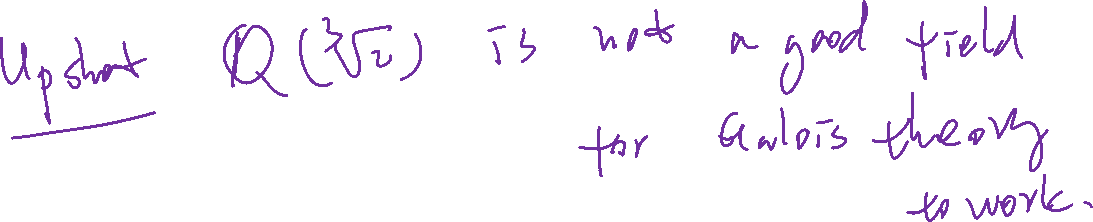 Upshot ℚ(∛2) is not a good field
for Galois theory
to work.